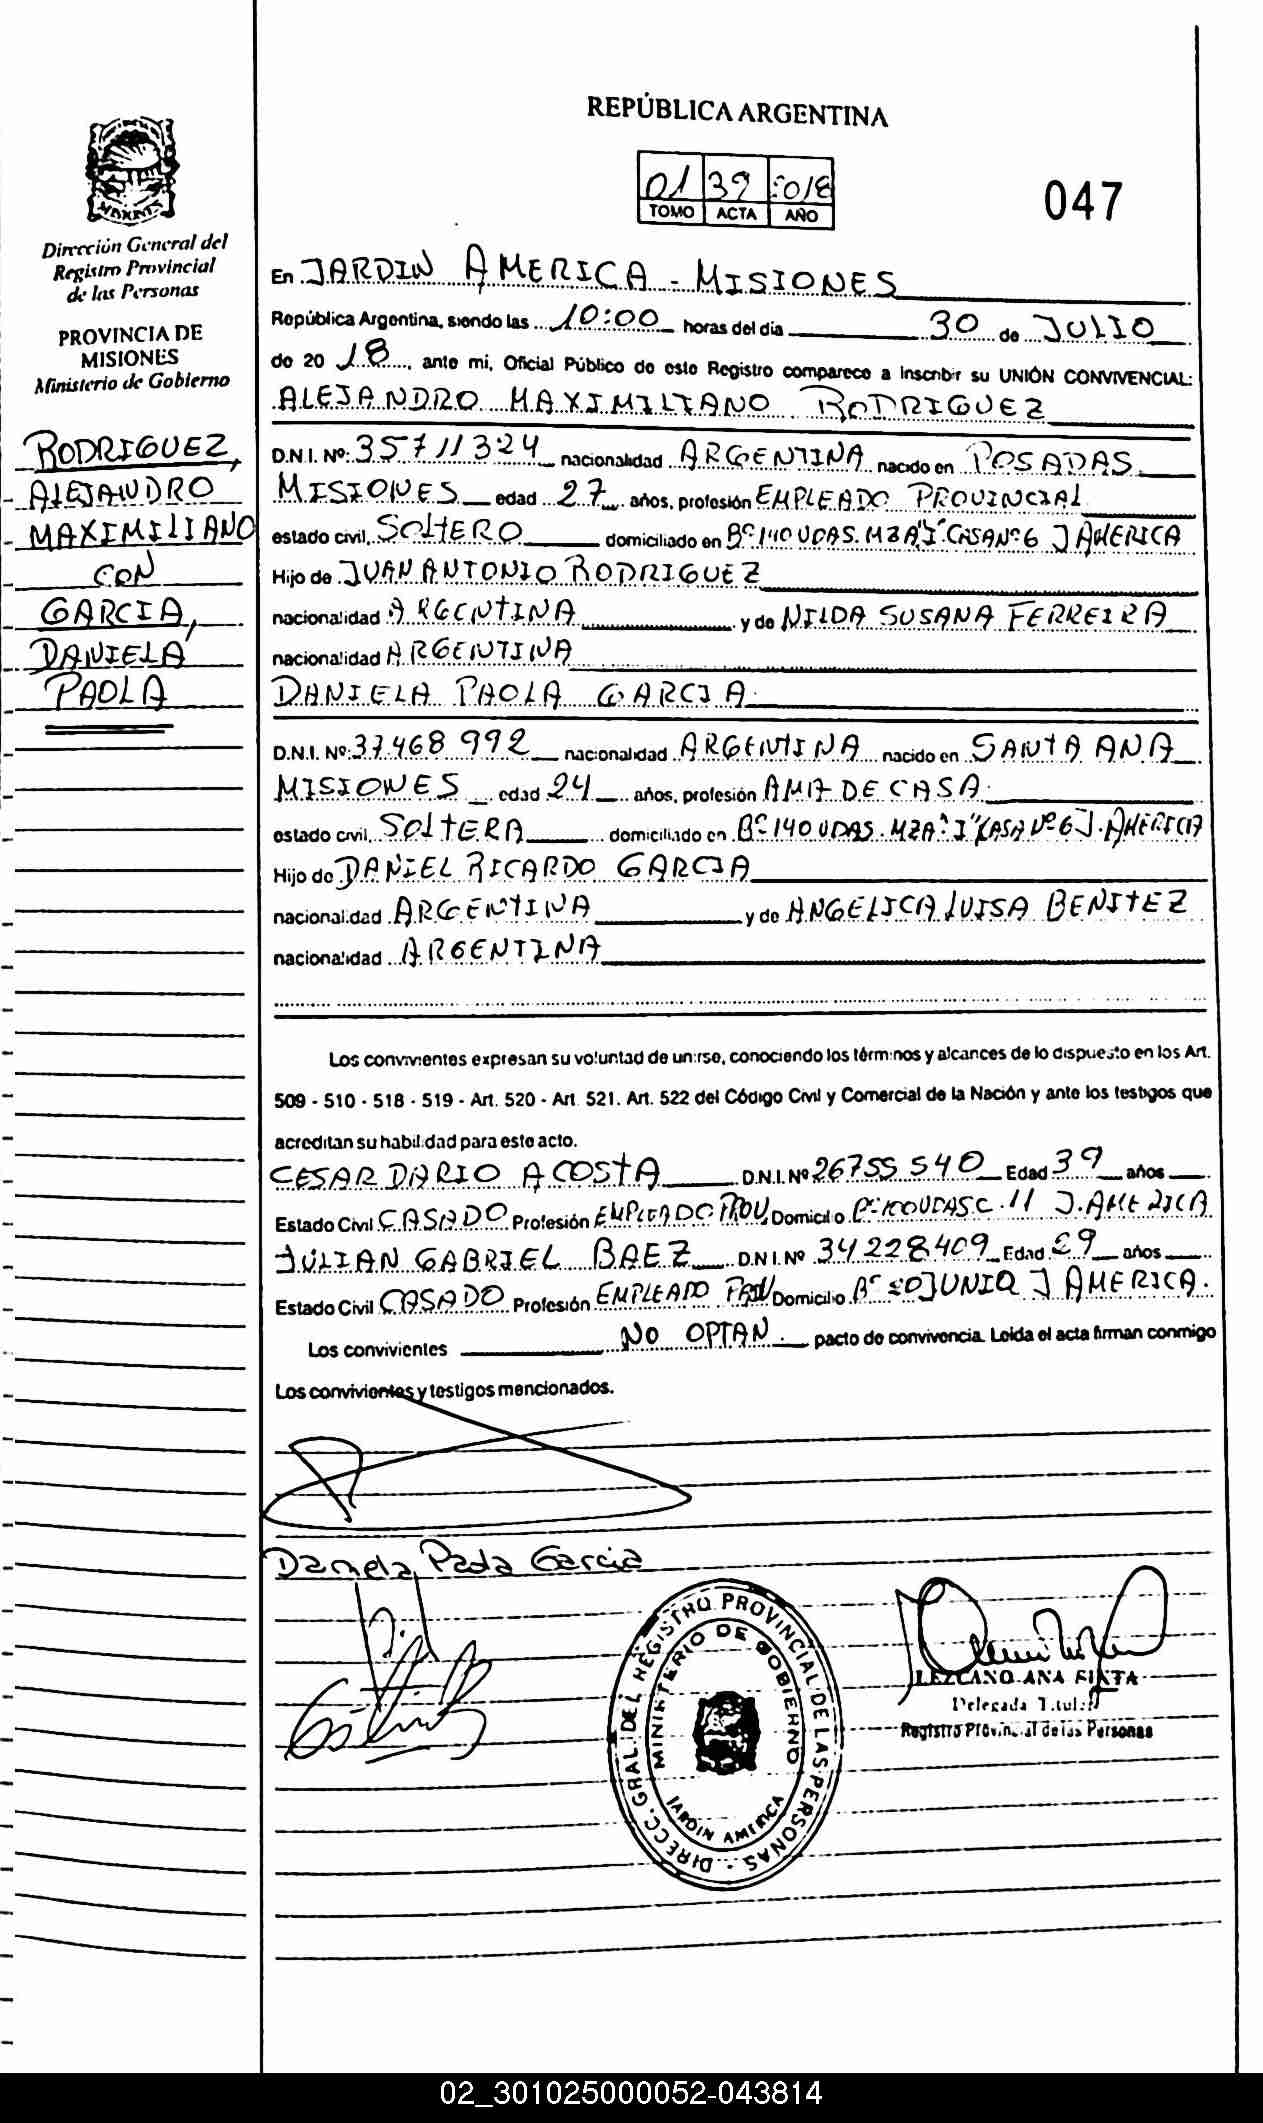 REPÚBLICA ARGENTINA
01 39 2018
TOMO ACTA AÑO
047
Dirección General del
Registro Provincial
de las Personas
PROVINCIA DE
MISIONES
Ministerio de Gobierno
RODRIGUEZ,
ALEJANDRO
MAXIMILIANO
CON
GARCIA,
DANIELA
PAOLA
En JARDIN AMERICA - MISIONES
República Argentina, siendo las 10:00 horas del día 30 de JULIO
de 20 18, ante mi, Oficial Público de este Registro comparece a inscribir su UNIÓN CONVIVENCIAL:
ALEJANDRO MAXIMILIANO RODRIGUEZ
D.N.I. Nº: 35711324 nacionalidad ARGENTINA nacido en POSADAS
MISIONES edad 27 años, profesión EMPLEADO PROVINCIAL
estado civil, SOLTERO domiciliado en Bº 140 VDAS. MZA "I" CASA Nº 6 J AMERICA
Hijo de JUAN ANTONIO RODRIGUEZ
nacionalidad ARGENTINA y de NILDA SUSANA FERREIRA
nacionalidad ARGENTINA
DANIELA PAOLA GARCIA
D.N.I. Nº: 37.468 992 nacionalidad ARGENTINA nacido en SANTA ANA
MISIONES edad 24 años, profesión AMA DE CASA
estado civil, SOLTERA domiciliado en Bº 140 VDAS. MZA "I" CASA Nº 6 J. AMERICA
Hijo de DANIEL RICARDO GARCIA
nacionalidad ARGENTINA y de ANGELICA LUISA BENITEZ
nacionalidad ARGENTINA
Los convivientes expresan su voluntad de unirse, conociendo los términos y alcances de lo dispuesto en los Art.
509 - 510 - 518 - 519 - Art. 520 - Art. 521. Art. 522 del Código Civil y Comercial de la Nación y ante los testigos que
acreditan su habilidad para este acto.
CESAR DARIO ACOSTA D.N.I. Nº 26755 540 Edad 39 años
Estado Civil CASADO Profesión EMPLEADO PROV Domicilio C. 11 J. AMERICA
JULIAN GABRIEL BAEZ D.N.I. Nº 34228409 Edad 29 años
Estado Civil CASADO Profesión EMPLEADO PROV Domicilio Bº 20 JUNIO J AMERICA.
Los convivientes NO OPTAN. pacto de convivencia. Leida el acta firman conmigo
Los convivientes y testigos mencionados.
Daniela Paola Garcia
DIRECC. GRAL. DEL REGISTRO PROVINCIAL DE LAS PERSONAS -
MINISTERIO DE GOBIERNO
JARDIN AMERICA
LEZCANO ANA
Delegada Titular
Registro Provincial de las Personas
02_301025000052-043814